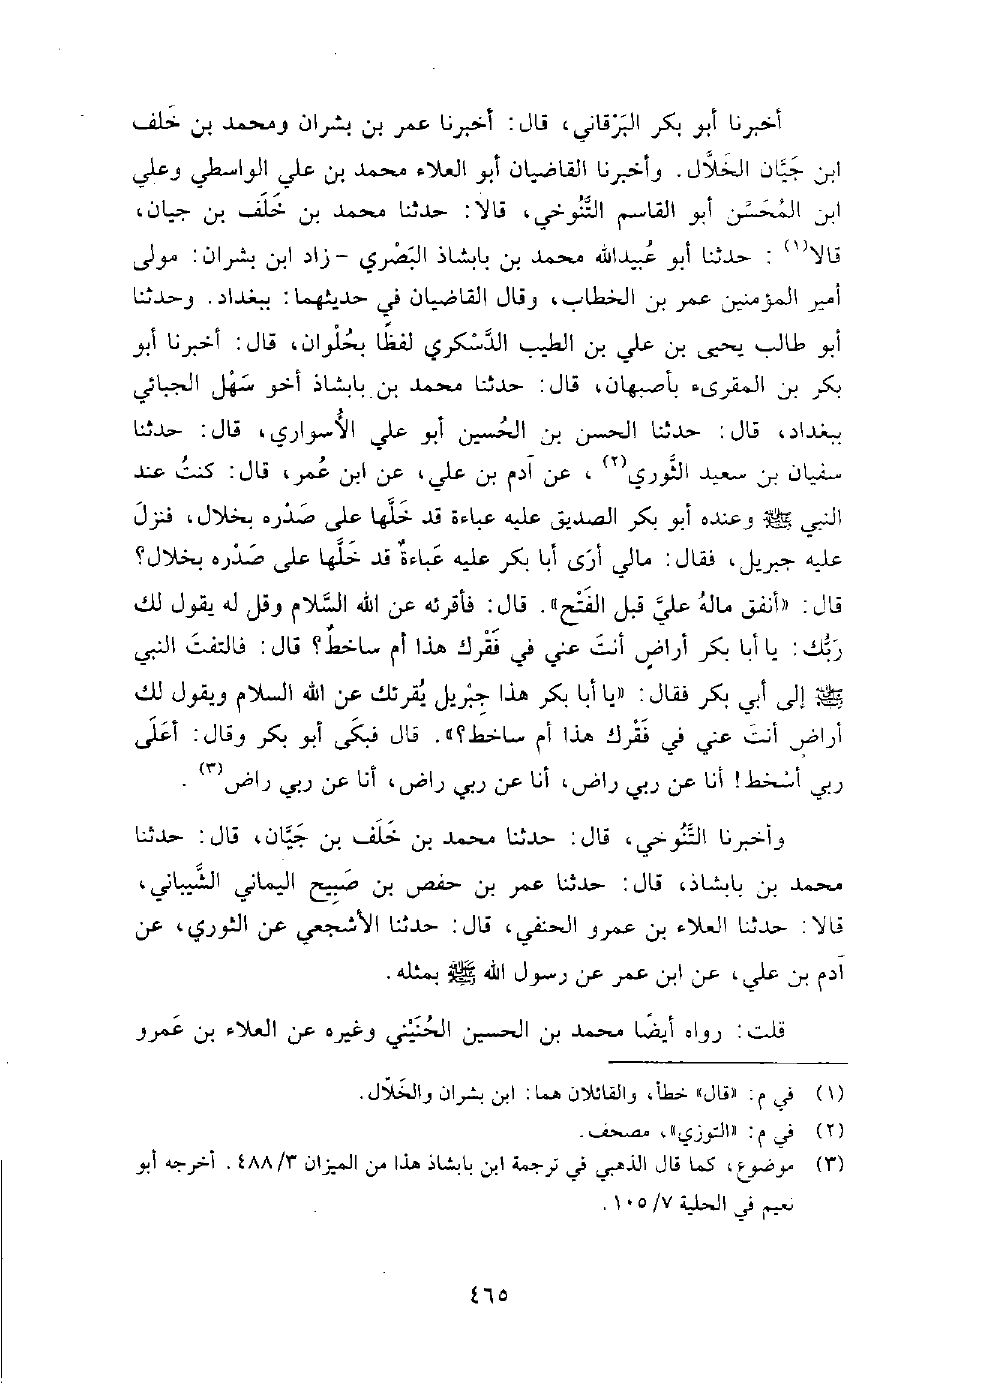 أخبرنا أبو بكر البَرْقاني، قال: أخبرنا عمر بن بشران ومحمد بن خَلف
ابن جَيَّان الخَلَّال. وأخبرنا القاضيان أبو العلاء محمد بن علي الواسطي وعلي
ابن المُحَسِّن أبو القاسم التَّنُوخي، قالا: حدثنا محمد بن خَلَف بن جيان،
قالا(١): حدثنا أبو عُبيدالله محمد بن بابشاذ البَصْري -زاد ابن بشران: مولى
أمير المؤمنين عمر بن الخطاب، وقال القاضيان في حديثهما: ببغداد. وحدثنا
أبو طالب يحيى بن علي بن الطيب الدَّسْكري لفظًا بحُلْوان، قال: أخبرنا أبو
بكر بن المقرىء بأصبهان، قال: حدثنا محمد بن بابشاذ أخو سَهْل الجبائي
ببغداد، قال: حدثنا الحسن بن الحُسين أبو علي الأُسواري، قال: حدثنا
سفيان بن سعيد الثَّوري(٢)، عن آدم بن علي، عن ابن عُمر، قال: كنتُ عند
النبي ﷺ وعنده أبو بكر الصديق عليه عباءة قد خَلَّها على صَدْره بخلال، فنزلَ
عليه جبريل، فقال: مالي أرَى أبا بكر عليه عَباءةٌ قد خَلَّها على صَدْره بخلال؟
قال: «أنفق مالهُ عليَّ قبل الفَتْح». قال: فأقرئه عن الله السَّلام وقل له يقول لك
رَبُّك: يا أبا بكر أراضٍ أنتَ عني في فَقْرك هذا أم ساخطٌ؟ قال: فالتفتَ النبي
ﷺ إلى أبي بكر فقال: «يا أبا بكر هذا جِبْريل يُقرئك عن الله السلام ويقول لك
أراضٍ أنتَ عني في فَقْرك هذا أم ساخط؟». قال فبكَى أبو بكر وقال: أعَلَى
ربي أسْخط! أنا عن ربي راض، أنا عن ربي راض، أنا عن ربي راض(٣).
وأخبرنا التَّنُوخي، قال: حدثنا محمد بن خَلَف بن جَيَّان، قال: حدثنا
محمد بن بابشاذ، قال: حدثنا عمر بن حفص بن صَبِيح اليماني الشَّيباني،
قالا: حدثنا العلاء بن عمرو الحنفي، قال: حدثنا الأشجعي عن الثوري، عن
آدم بن علي، عن ابن عمر عن رسول الله ﷺ بمثله.
قلت: رواه أيضًا محمد بن الحسين الحُنَيْني وغيره عن العلاء بن عَمرو
(١) في م: «قال» خطأ، والقائلان هما: ابن بشران والخَلَّال.
(٢) في م: «التوزي»، مصحف.
(٣) موضوع، كما قال الذهبي في ترجمة ابن بابشاذ هذا من الميزان ٣/ ٤٨٨. أخرجه أبو
نعيم في الحلية ٧/ ١٠٥.
٤٦٥